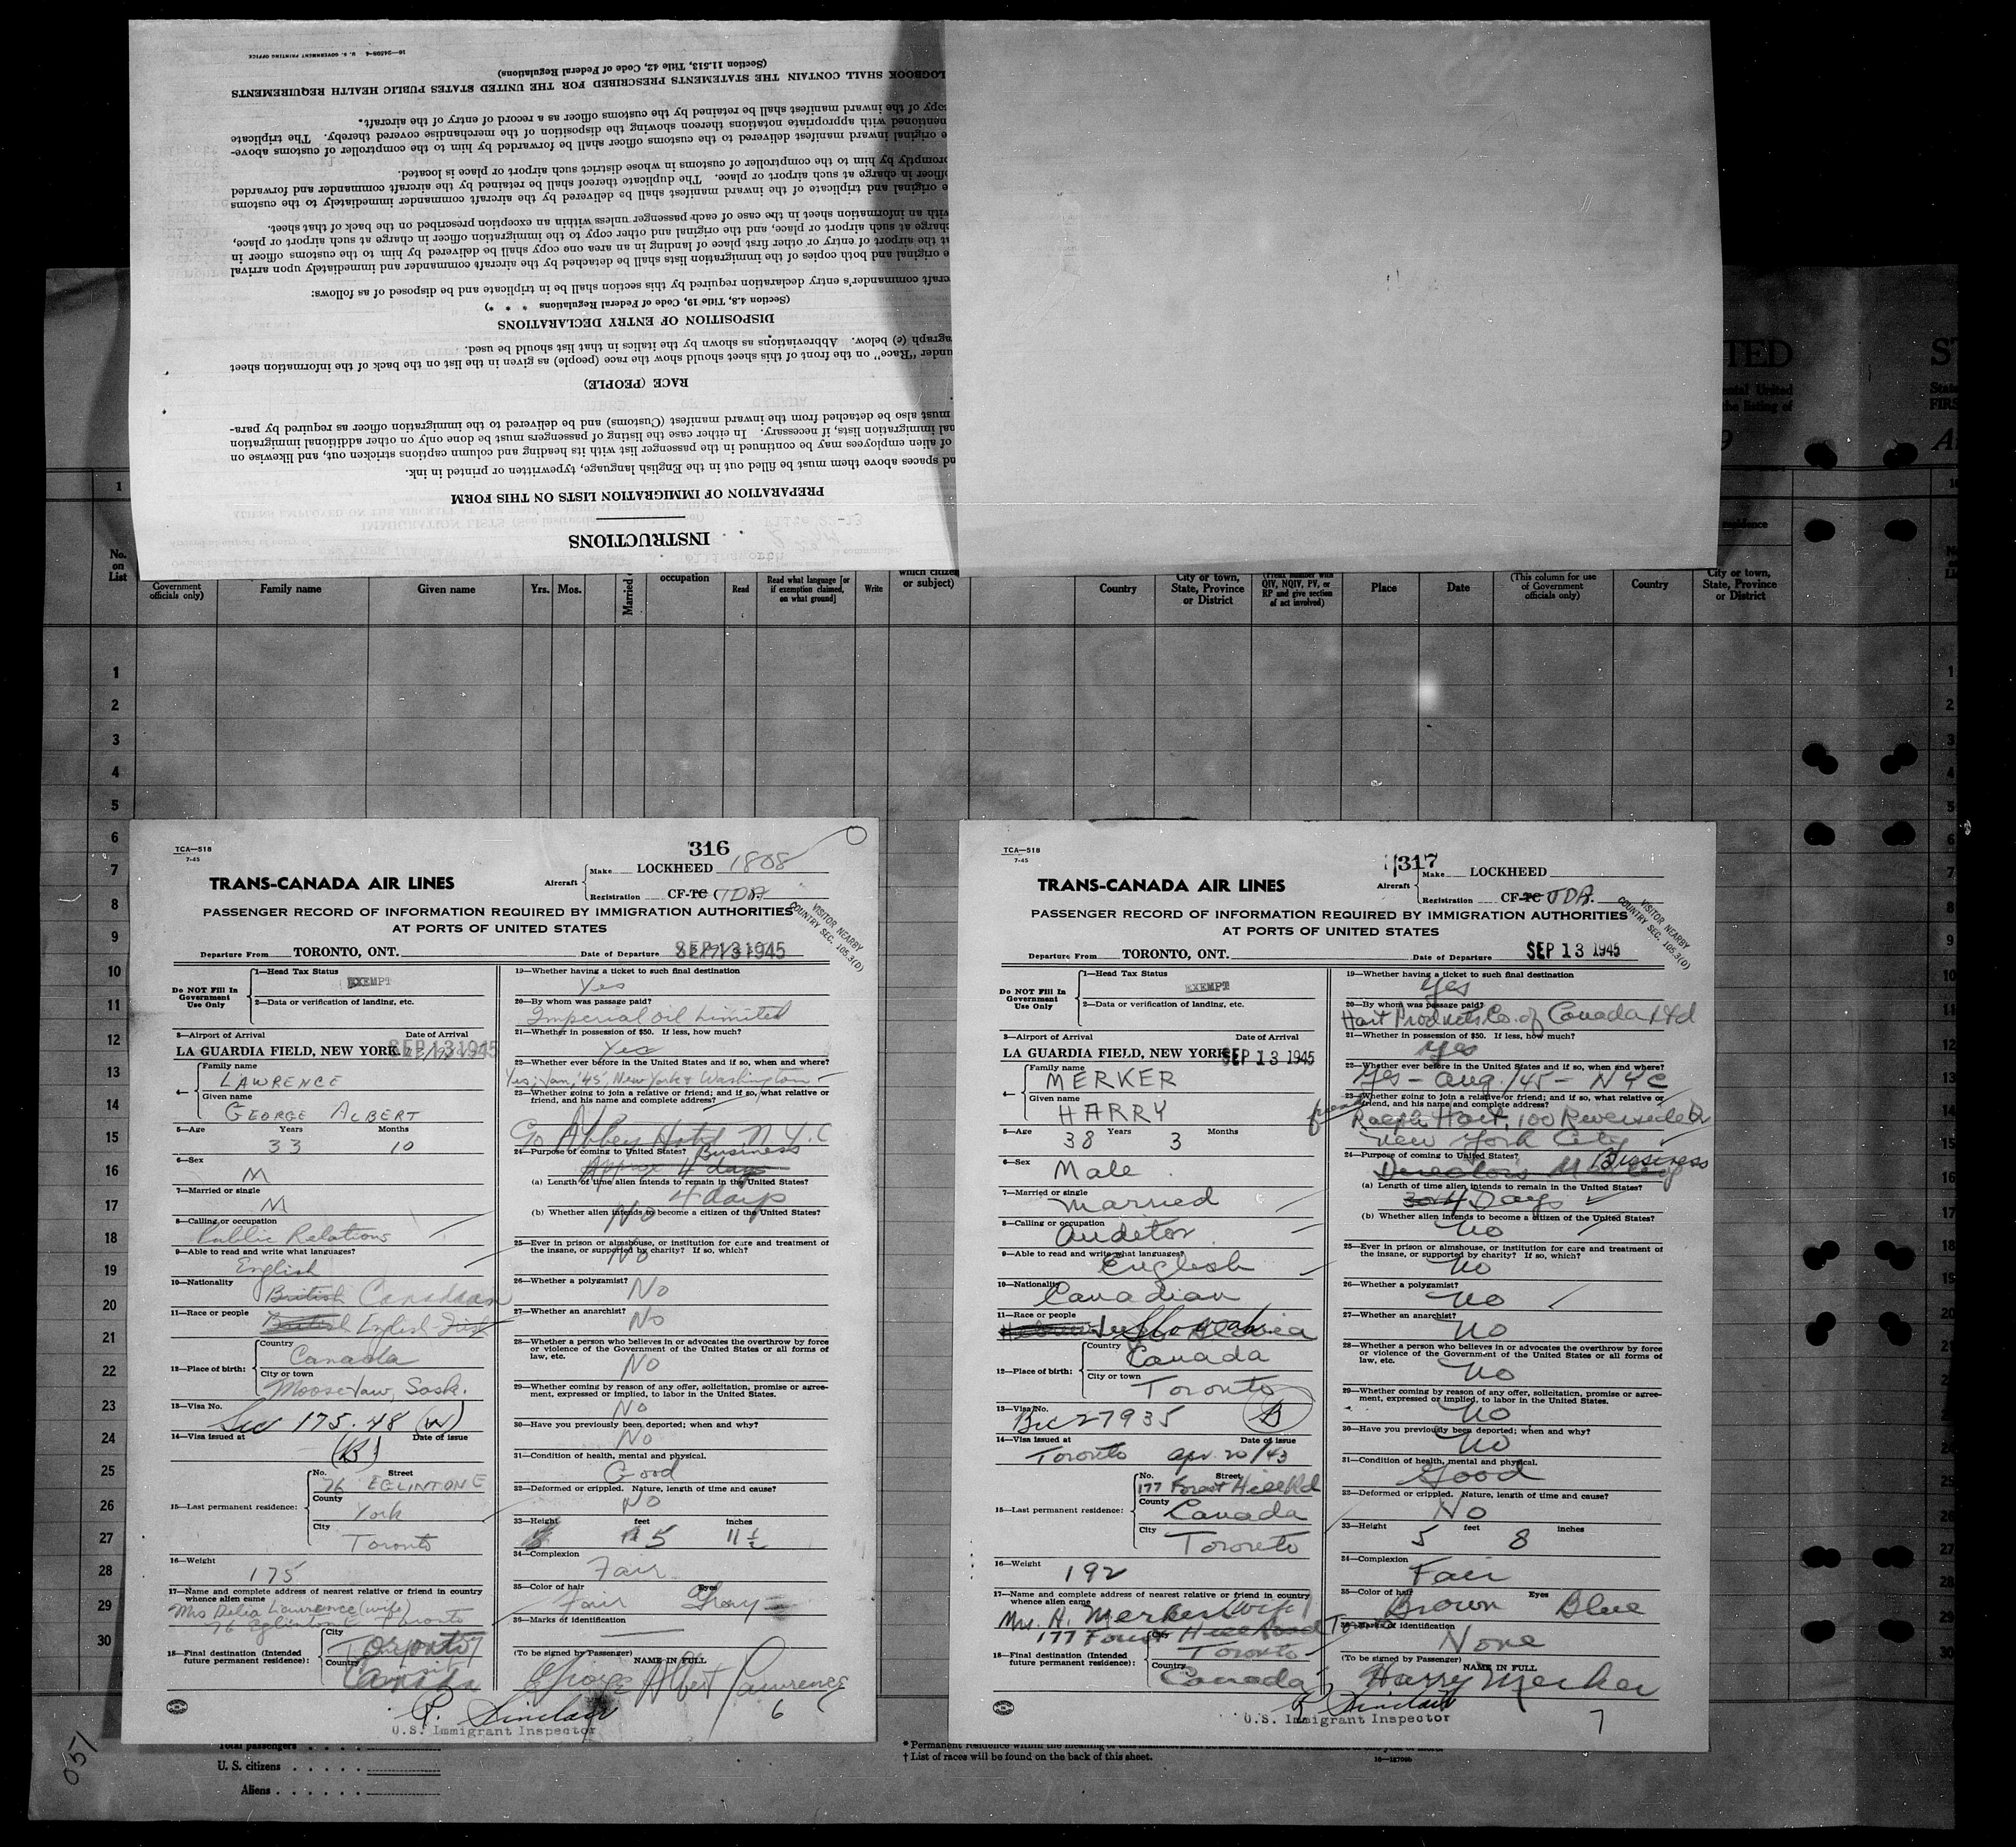 INSTRUCTIONS
PREPARATION OF IMMIGRATION LISTS ON THIS FORM
nd spaces above them must be filled out in the English language, typewritten or printed in ink.
of alien employees may be continued in the passenger list with its heading and column captions stricken out, and likewise on
nal immigration lists, if necessary. In either case the listing of passengers must be done only on other additional immigration
must also be detached from the inward manifest (Customs) and be delivered to the immigration officer as required by para-
RACE (PEOPLE)
under "Race" on the front of this sheet should show the race (people) as given in the list on the back of the information sheet
agraph (c) below. Abbreviations as shown by the italics in that list should be used.
DISPOSITION OF ENTRY DECLARATIONS
(Section 4.8, Title 19, Code of Federal Regulations * * *)
craft commander's entry declaration required by this section shall be in triplicate and be disposed of as follows:
e original and both copies of the immigration lists shall be detached by the aircraft commander and immediately upon arrival
at the airport of entry or other first place of landing in an area one copy shall be delivered by him to the customs officer in
charge at such airport or place, and the original and other copy to the immigration officer in charge at such airport or place,
with an information sheet in the case of each passenger unless within an exception prescribed on the back of that sheet.
e original and triplicate of the inward manifest shall be delivered by the aircraft commander immediately to the customs
officer in charge at such airport or place. The duplicate thereof shall be retained by the aircraft commander and forwarded
promptly by him to the comptroller of customs in whose district such airport or place is located.
e original inward manifest delivered to the customs officer shall be forwarded by him to the comptroller of customs above-
mentioned with appropriate notations thereon showing the disposition of the merchandise covered thereby. The triplicate
copy of the inward manifest shall be retained by the customs officer as a record of entry of the aircraft.
LOGBOOK SHALL CONTAIN THE STATEMENTS PRESCRIBED FOR THE UNITED STATES PUBLIC HEALTH REQUIREMENTS
(Section 11.513, Title 42, Code of Federal Regulations)
16—24598-4 U. S. GOVERNMENT PRINTING OFFICE
TED
ental United
the listing of
9
No. on List
Government officials only)
Family name
Given name
Yrs. Mos.
Married
occupation
Read
Read what language [or if exemption claimed, on what ground]
Write
which citizen or subject)
Country
City or town, State, Province or District
QIV, NQIV, PV, or RP and give section of act involved)
Place
Date
(This column for use of Government officials only)
Country
City or town, State, Province or District
1
2
3
4
5
6
7
8
9
10
11
12
13
14
15
16
17
18
19
20
21
22
23
24
25
26
27
28
29
30
TCA—518
7-45
316
Aircraft
Make LOCKHEED 1808
Registration CF-TC (TDA.
TRANS-CANADA AIR LINES
PASSENGER RECORD OF INFORMATION REQUIRED BY IMMIGRATION AUTHORITIES
AT PORTS OF UNITED STATES
VISITOR NEARBY
COUNTRY SEC. 105.3(D)
Departure From TORONTO, ONT. Date of Departure SEP 13 1945
Do NOT Fill In Government Use Only
1—Head Tax Status
EXEMPT
2—Data or verification of landing, etc.
3—Airport of Arrival Date of Arrival
LA GUARDIA FIELD, NEW YORK. SEP 13 1945
4— Family name
LAWRENCE
Given name
GEORGE ALBERT
5—Age Years Months
33 10
6—Sex
M
7—Married or single
M
8—Calling or occupation
Public Relations
9—Able to read and write what languages?
English
10—Nationality
British Canadian
11—Race or people
British English-Irish
12—Place of birth:
Country
Canada
City or town
Moose Jaw, Sask.
13—Visa No.
Sec 175.48 (W)
14—Visa issued at Date of issue
(B)
15—Last permanent residence:
No. Street
76 EGLINTON E
County
York
City
Toronto
16—Weight
175
17—Name and complete address of nearest relative or friend in country
whence alien came
Mrs Delia Lawrence (wife)
76 Eglinton E Toronto
18—Final destination (Intended future permanent residence):
City
Toronto
Country
Canada
19—Whether having a ticket to such final destination
Yes
20—By whom was passage paid?
Imperial Oil Limited
21—Whether in possession of $50. If less, how much?
Yes
22—Whether ever before in the United States and if so, when and where?
Yes; Jan, '45, New York & Washington
23—Whether going to join a relative or friend; and if so, what relative or
friend, and his name and complete address?
Go Abbey Hotel N.Y.C
24—Purpose of coming to United States? Business
Approx 4 days
(a) Length of time alien intends to remain in the United States?
4 days
(b) Whether alien intends to become a citizen of the United States?
No
25—Ever in prison or almshouse, or institution for care and treatment of
the insane, or supported by charity? If so, which?
No
26—Whether a polygamist?
No
27—Whether an anarchist?
No
28—Whether a person who believes in or advocates the overthrow by force
or violence of the Government of the United States or all forms of
law, etc.
No
29—Whether coming by reason of any offer, solicitation, promise or agree-
ment, expressed or implied, to labor in the United States.
No
30—Have you previously been deported; when and why?
No
31—Condition of health, mental and physical.
Good
32—Deformed or crippled. Nature, length of time and cause?
No
33—Height feet inches
5 11½
34—Complexion
Fair
35—Color of hair Eyes
Fair Gray
36—Marks of identification
(To be signed by Passenger) NAME IN FULL
George Albert Lawrence
P. Sinclair
U.S. Immigrant Inspector
6
TCA—518
7-45
317
Aircraft
Make LOCKHEED
Registration CF-TC TDA.
TRANS-CANADA AIR LINES
PASSENGER RECORD OF INFORMATION REQUIRED BY IMMIGRATION AUTHORITIES
AT PORTS OF UNITED STATES
VISITOR NEARBY
COUNTRY SEC. 105.3(D)
Departure From TORONTO, ONT. Date of Departure SEP 13 1945
Do NOT Fill In Government Use Only
1—Head Tax Status
EXEMPT
2—Data or verification of landing, etc.
3—Airport of Arrival Date of Arrival
LA GUARDIA FIELD, NEW YORK SEP 13 1945
4— Family name
MERKER
Given name
HARRY
5—Age Years Months
38 3
6—Sex
Male
7—Married or single
Married
8—Calling or occupation
Auditor
9—Able to read and write what languages?
English
10—Nationality
Canadian
11—Race or people
Slovak
12—Place of birth:
Country
Canada
City or town
Toronto
13—Visa No.
Bcc 27935 (B)
14—Visa issued at Date of issue
Toronto Apr. 20/43
15—Last permanent residence:
No. Street
177 Forest Hill Rd
County
Canada
City
Toronto
16—Weight
192
17—Name and complete address of nearest relative or friend in country
whence alien came
Mrs. H. Merker wife
177 Forest Hill Road Tor
18—Final destination (Intended future permanent residence):
City
Toronto
Country
Canada
19—Whether having a ticket to such final destination
Yes
20—By whom was passage paid?
Hart Products Co. of Canada Ltd
21—Whether in possession of $50. If less, how much?
Yes
22—Whether ever before in the United States and if so, when and where?
Yes - Aug./45 - NYC
23—Whether going to join a relative or friend; and if so, what relative or
friend, and his name and complete address?
friend Ralph Hart, 100 Riverside Dr
New York City
24—Purpose of coming to United States? Business
Directors Meeting
(a) Length of time alien intends to remain in the United States?
3 or 4 Days
(b) Whether alien intends to become a citizen of the United States?
No
25—Ever in prison or almshouse, or institution for care and treatment of
the insane, or supported by charity? If so, which?
No
26—Whether a polygamist?
No
27—Whether an anarchist?
No
28—Whether a person who believes in or advocates the overthrow by force
or violence of the Government of the United States or all forms of
law, etc.
No
29—Whether coming by reason of any offer, solicitation, promise or agree-
ment, expressed or implied, to labor in the United States.
No
30—Have you previously been deported; when and why?
No
31—Condition of health, mental and physical.
Good
32—Deformed or crippled. Nature, length of time and cause?
No
33—Height feet inches
5 8
34—Complexion
Fair
35—Color of hair Eyes
Brown Blue
36—Marks of identification
None
(To be signed by Passenger) NAME IN FULL
Harry Merker
P. Sinclair
U.S. Immigrant Inspector
7
051
Total passengers
U. S. citizens
Aliens
* Permanent residence within the meaning of
† List of races will be found on the back of this sheet.